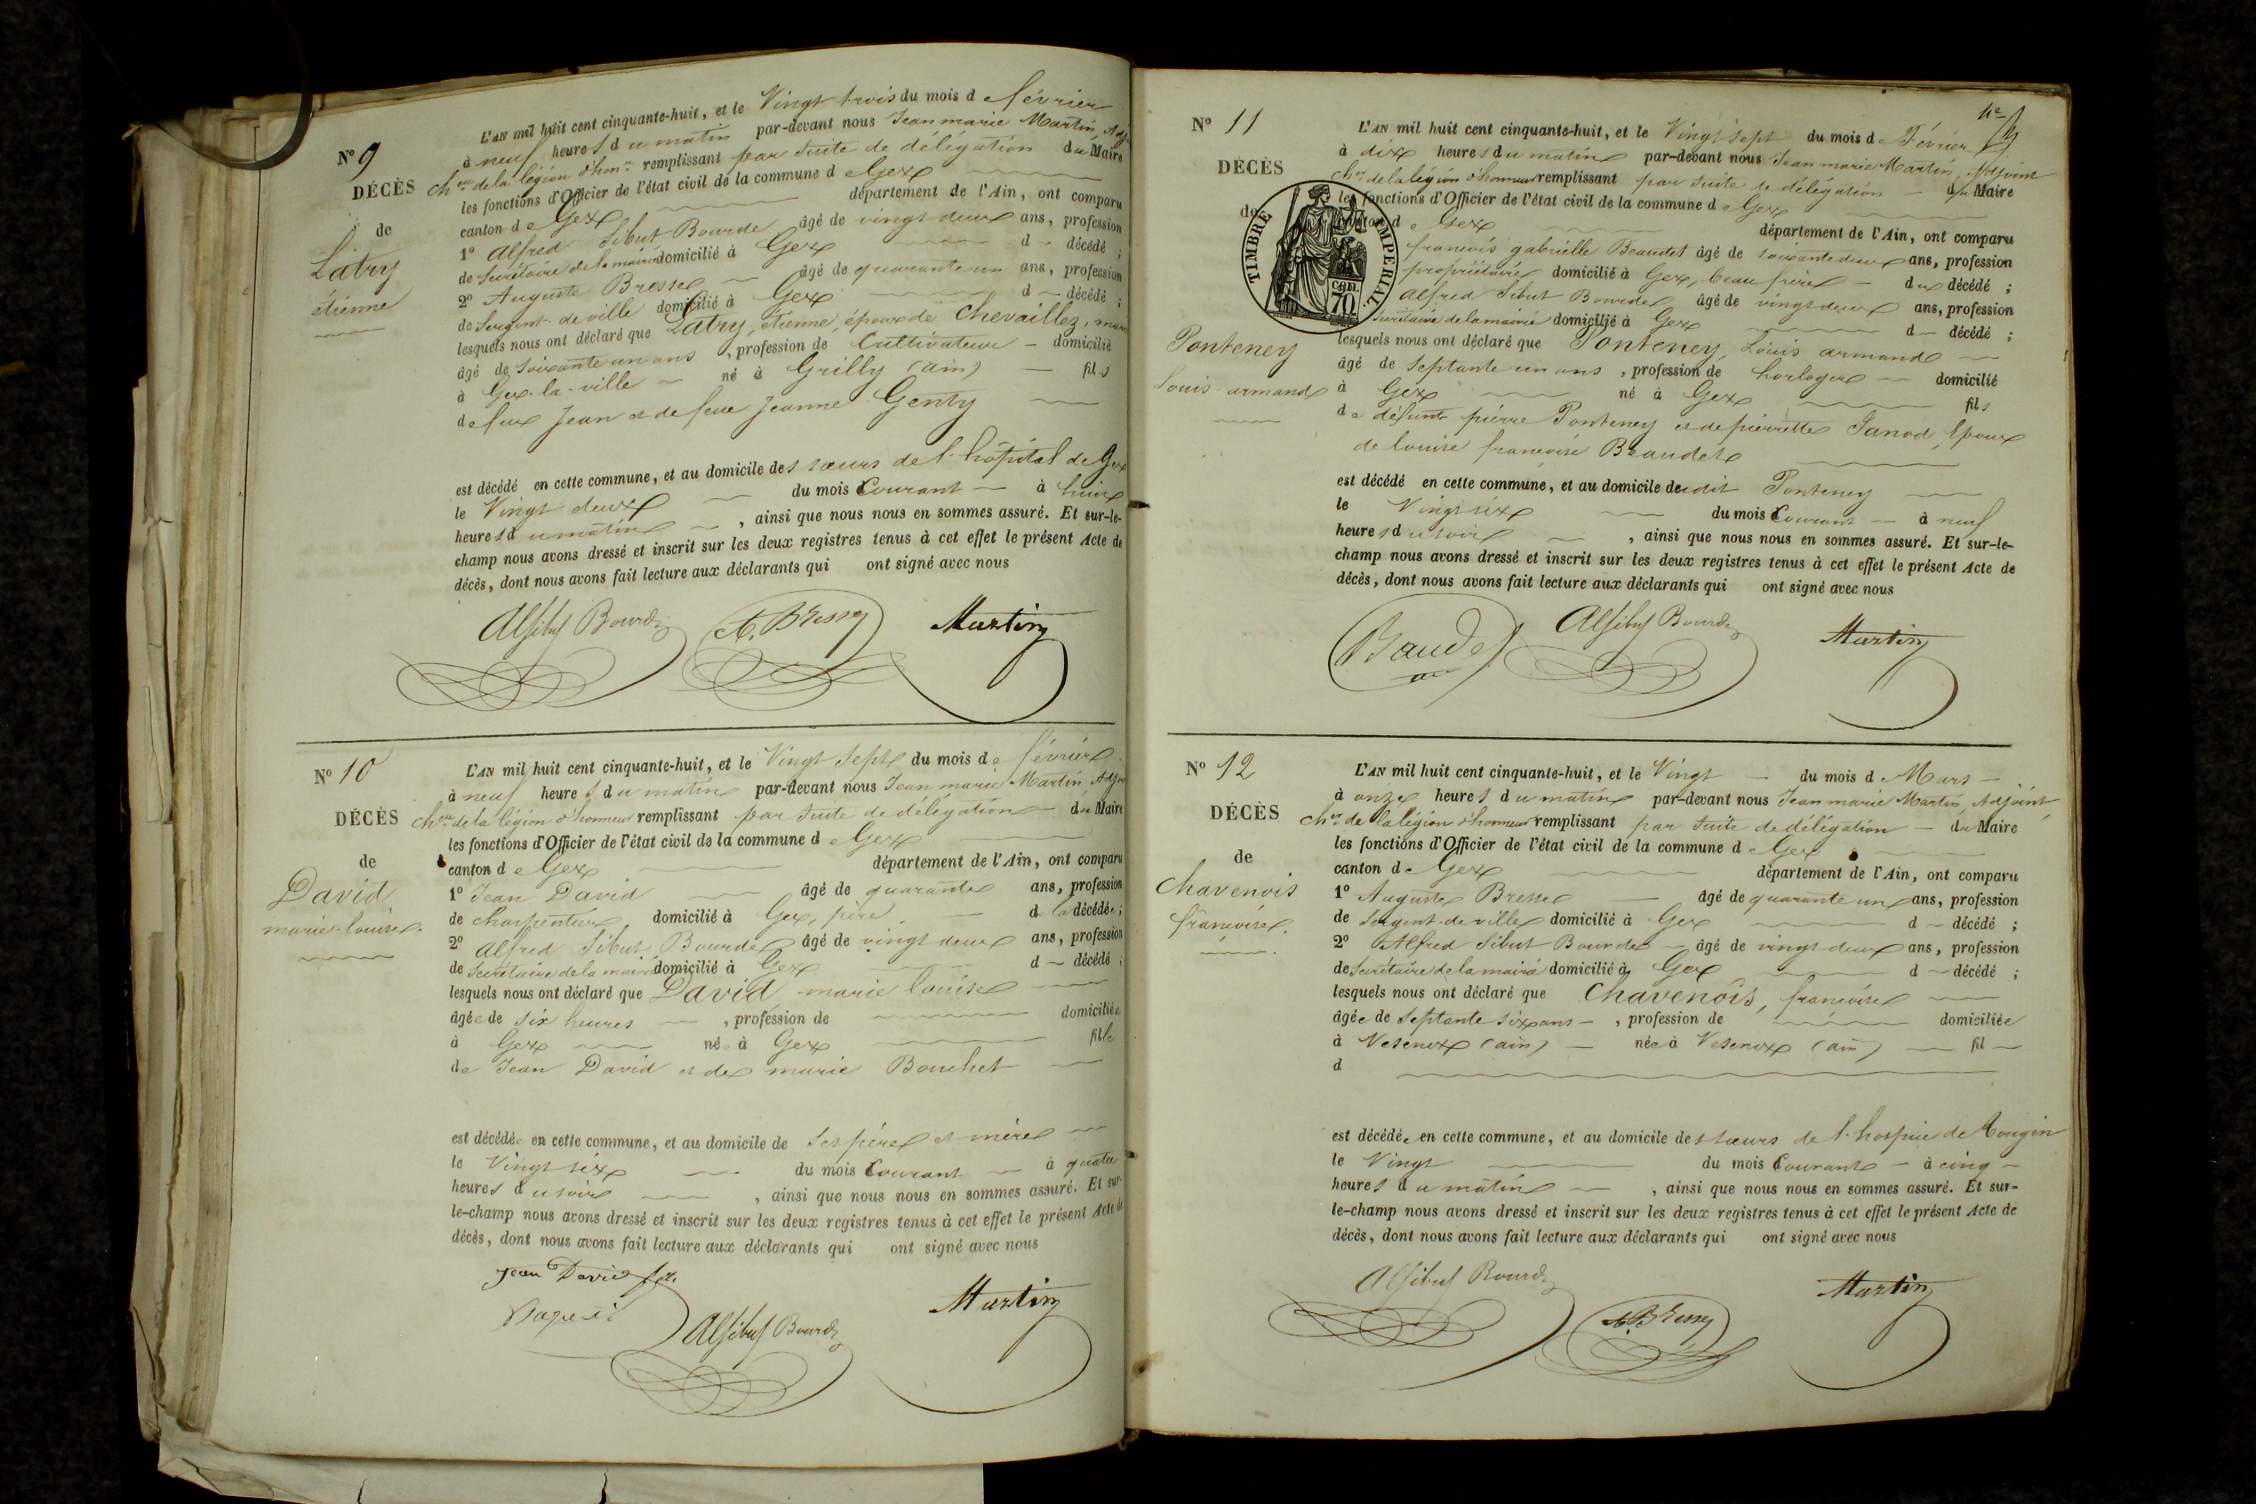 N° 9
DÉCÈS
de
Latry
étienne
L'AN mil huit cent cinquante-huit, et le Vingt trois du mois de février
à neuf heures du matin par-devant nous Jean marie Martin, Adjt
cher de la légion d'honr remplissant par suite de délégation du Maire
les fonctions d'Officier de l'état civil de la commune de Gex
canton de Gex département de l'Ain, ont comparu
1° Alfred Sibut Bourde âgé de vingt deux ans, profession
de Secrétaire de la mairie domicilié à Gex d décédé ;
2° Auguste Bresse âgé de quarante un ans, profession
de Sergent de ville domicilié à Gex d décédé ;
lesquels nous ont déclaré que Latry, étienne, époux de Chevaillez, marie
âgé de soixante un ans, profession de Cultivateur domicilié
à Gex-la-ville né à Grilly (ain) fils
de feu Jean et de feue Jeanne Genty
est décédé en cette commune, et au domicile des sœurs de l'hôpital de Gex
le Vingt deux du mois Courant à huit
heures du matin, ainsi que nous nous en sommes assuré. Et sur-le-
champ nous avons dressé et inscrit sur les deux registres tenus à cet effet le présent Acte de
décès, dont nous avons fait lecture aux déclarants qui ont signé avec nous
Alf Sibut Bourde A. Bresse Martin
N° 10
DÉCÈS
de
David
marie-louise.
L'AN mil huit cent cinquante-huit, et le Vingt Sept du mois de février
à neuf heures du matin par-devant nous Jean marie Martin, Adjoi
cher de la légion d'honneur remplissant par suite de délégation du Maire
les fonctions d'Officier de l'état civil de la commune de Gex
canton de Gex département de l'Ain, ont comparu
1° Jean David âgé de quarante ans, profession
de charpentier, domicilié à Gex, père de la décédée ;
2° Alfred Sibut Bourde âgé de vingt deux ans, profession
de Secrétaire de la mairie domicilié à Gex d décédé ;
lesquels nous ont déclaré que David, marie louise
âgée de six heures, profession de domiciliée
à Gex née à Gex fille
de Jean David et de marie Bouchet
est décédée en cette commune, et au domicile de ses père et mère
le Vingt six du mois Courant à quatre
heures du soir, ainsi que nous nous en sommes assuré. Et sur-
le-champ nous avons dressé et inscrit sur les deux registres tenus à cet effet le présent Acte de
décès, dont nous avons fait lecture aux déclarants qui ont signé avec nous
Jean David
Alf Sibut Bourde Martin
N° 11
DÉCÈS
de
Ponteney
Louis-armand
TIMBRE IMPÉRIAL
CEN. 70
L'AN mil huit cent cinquante-huit, et le Vingt Sept du mois de Février
à dix heures du matin par-devant nous Jean marie Martin, Adjoint
cher de la légion d'honneur remplissant par suite de délégation du Maire
les fonctions d'Officier de l'état civil de la commune de Gex
canton de Gex département de l'Ain, ont comparu
françois gabrielle Beaudet âgé de soixante deux ans, profession
propriétaire domicilié à Gex, beau frère du décédé ;
Alfred Sibut Bourde âgé de vingt deux ans, profession
secrétaire de la mairie domicilié à Gex d décédé ;
lesquels nous ont déclaré que Ponteney, Louis armand
âgé de Septante un ans, profession de horloger domicilié
à Gex né à Gex fils
de défunt pierre Ponteney et de pierrette Janod, Epoux
de louise françoise Beaudet
est décédé en cette commune, et au domicile dudit Ponteney
le Vingt six du mois Courant à neuf
heures du soir, ainsi que nous nous en sommes assuré. Et sur-le-
champ nous avons dressé et inscrit sur les deux registres tenus à cet effet le présent Acte de
décès, dont nous avons fait lecture aux déclarants qui ont signé avec nous
Baudet Alf Sibut Bourde Martin
N° 12
DÉCÈS
de
Chavenois
françoise.
L'AN mil huit cent cinquante-huit, et le Vingt du mois de Mars
à onze heures du matin par-devant nous Jean marie Martin, Adjoint,
cher de la légion d'honneur remplissant par suite de délégation du Maire
les fonctions d'Officier de l'état civil de la commune de Gex
canton de Gex département de l'Ain, ont comparu
1° Auguste Bresse âgé de quarante un ans, profession
de Sergent-de-ville domicilié à Gex d décédé ;
2° Alfred Sibut Bourde âgé de vingt deux ans, profession
de Secrétaire de la mairie domicilié à Gex d décédé ;
lesquels nous ont déclaré que Chavenois, françoise
âgée de Septante six ans, profession de domiciliée
à Vesenex (ain) née à Vesenex (ain) fil
d
est décédée en cette commune, et au domicile des sœurs de l'hospice de Tougin
le Vingt du mois Courant à cinq
heures du matin, ainsi que nous nous en sommes assuré. Et sur-
le-champ nous avons dressé et inscrit sur les deux registres tenus à cet effet le présent Acte de
décès, dont nous avons fait lecture aux déclarants qui ont signé avec nous
Alf Sibut Bourde A. Bresse Martin